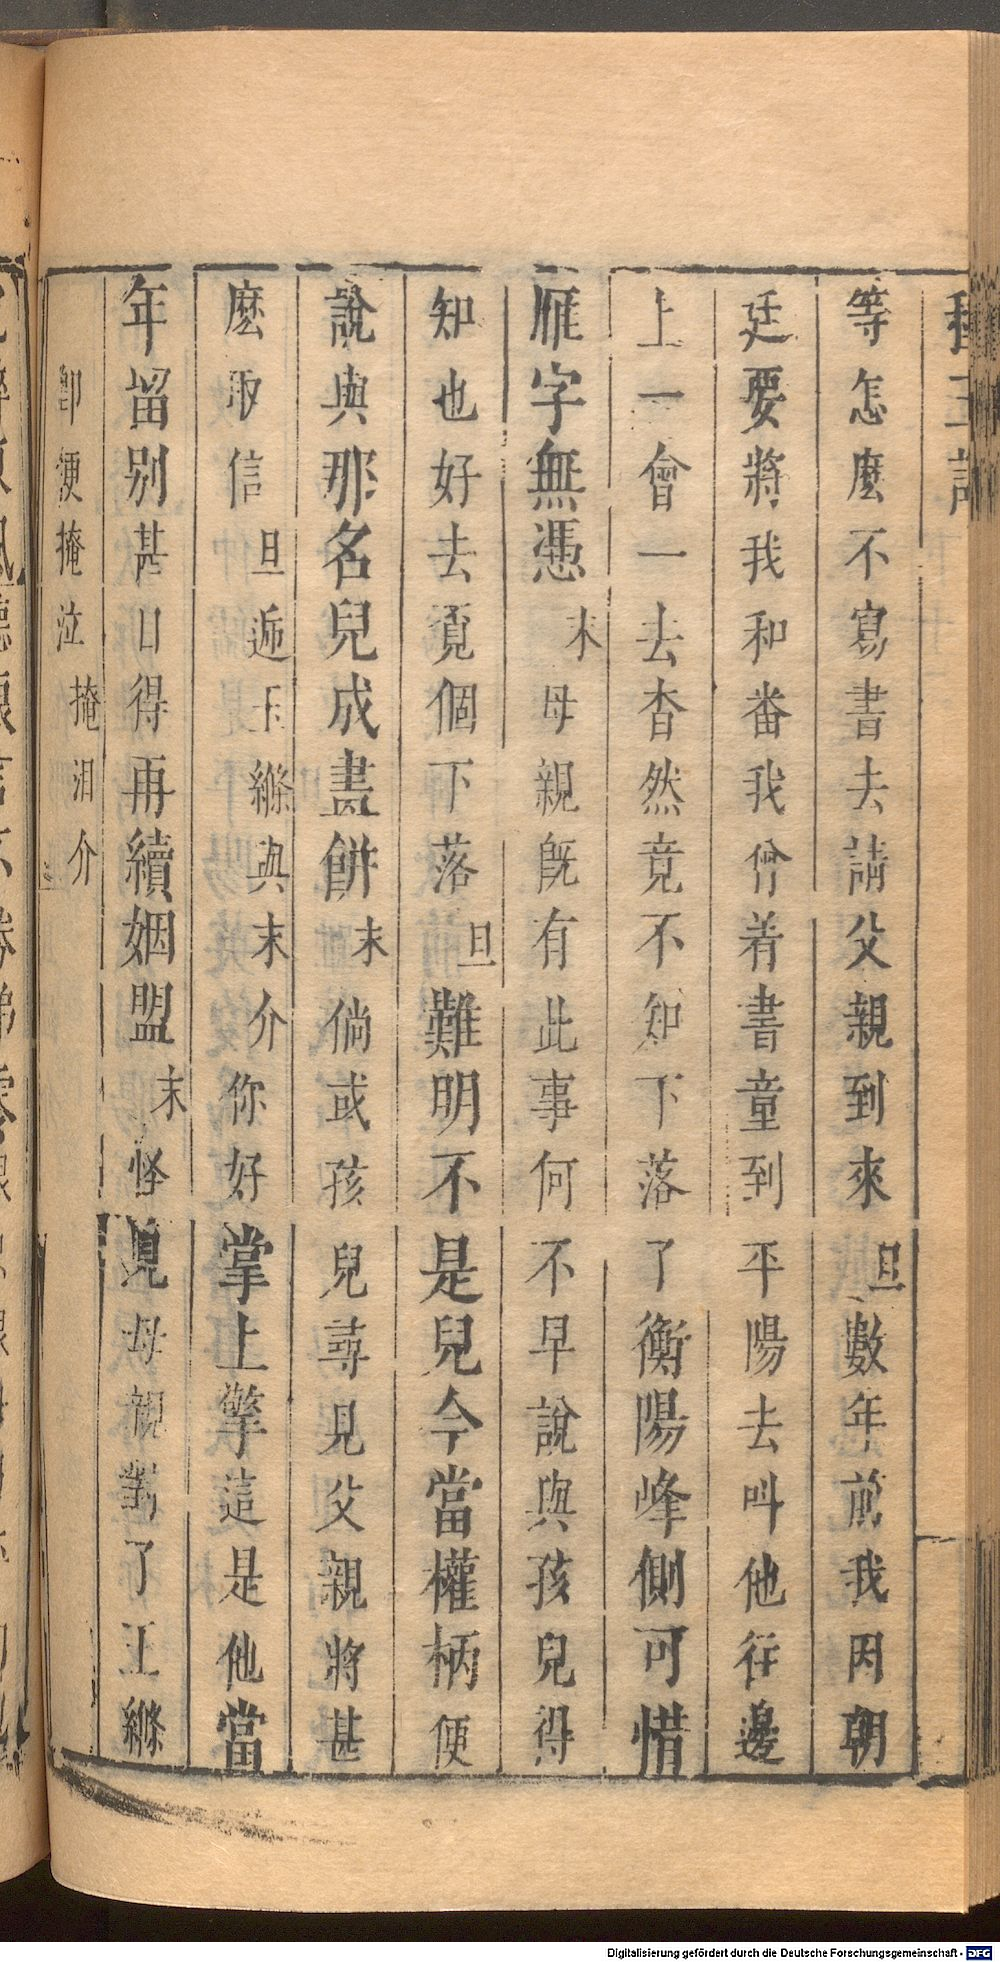 種玉記
等怎麽不寫書去請父親到來旦數年前我因朝
廷要將我和番我曾着書童到平陽去叫他往邊
上一會一去杳然竟不知下落了衡陽峰側可惜
雁字無憑末母親旣有此事何不早說與孩兒得
知也好去覔個下落旦難明不是兒今當權柄便
說與那名兒成畫餅末倘或孩兒尋見父親將甚
麽取信旦遞玉縧與末介你好掌上擎這是他當
年留別甚日得再續姻盟末怪見母親對了玉縧
卽便掩泣掩泪介
Digitalisierung gefördert durch die Deutsche Forschungsgemeinschaft - DFG